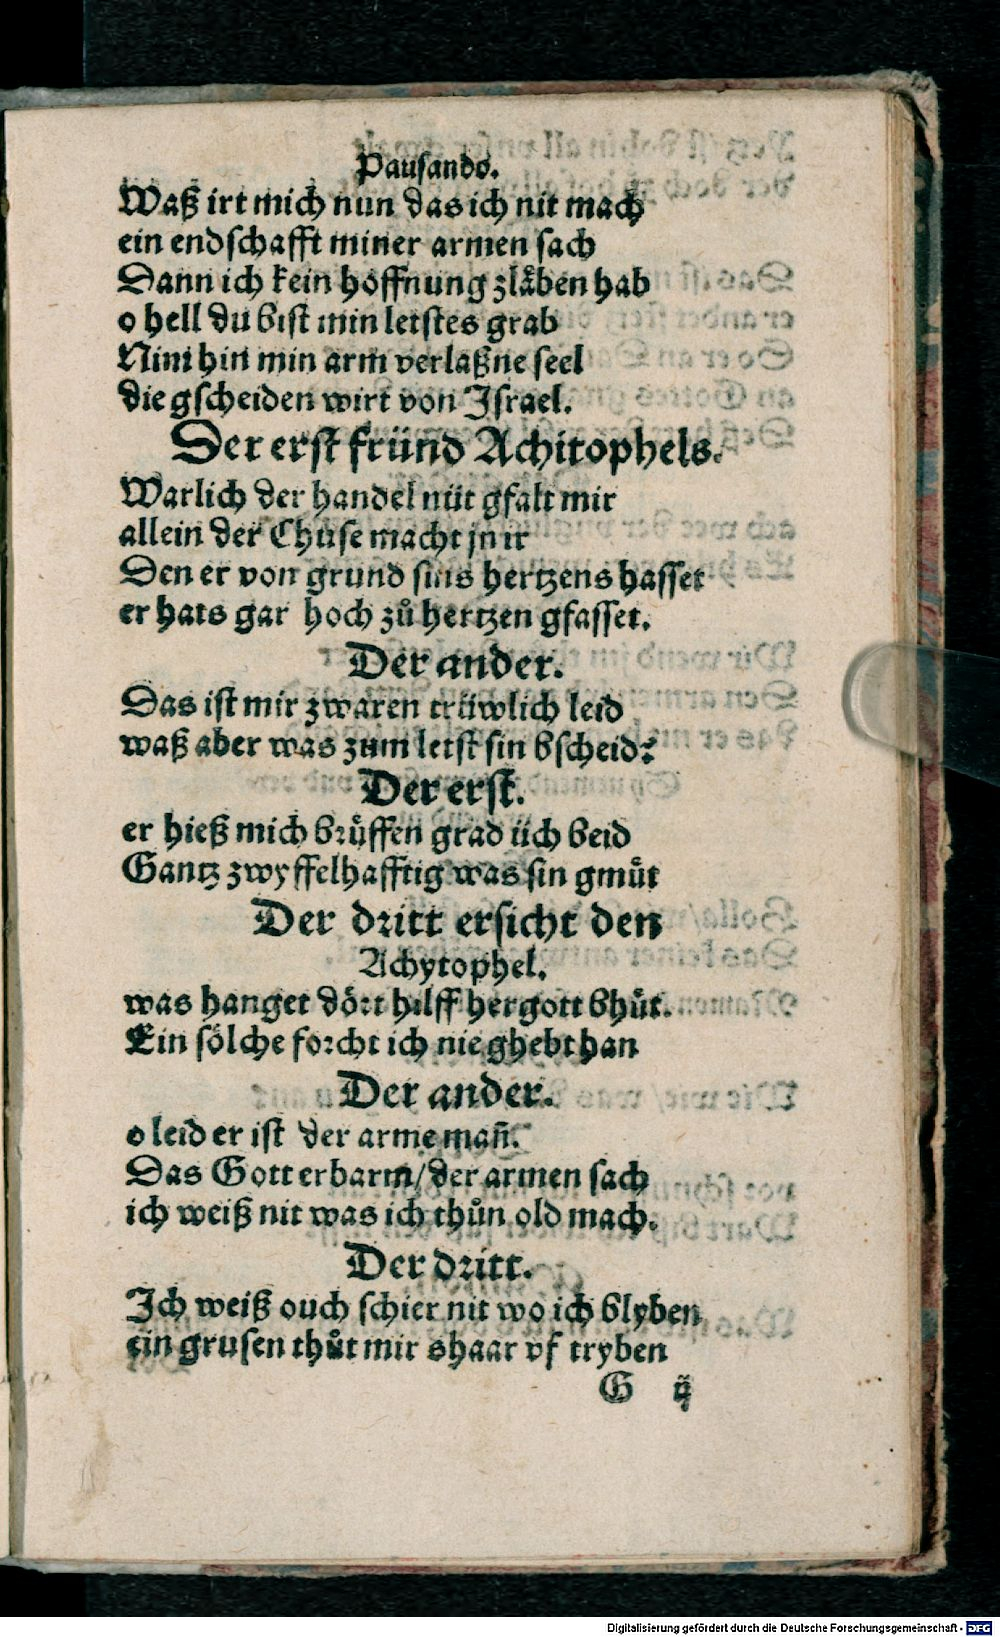 Pausando.
Waß irt mich nun das ich nit mach
ein endschafft miner armen sach
Dann ich kein hoffnung zlåben hab
o hell du bist min letstes grab
Nim hin min arm verlaßne seel
die gscheiden wirt von Israel.
Der erst fründ Achitophels.
Warlich der handel nüt gfalt mir
allein der Chuse macht jn ir
Den er von grund sins hertzens hasset
er hats gar hoch zů hertzen gfasset.
Der ander.
Das ist mir zwaren trüwlich leid
waß aber was zum letst sin bscheid?
Der erst.
er hieß mich brüffen grad üch beid
Gantz zwyffelhafftig was sin gmůt
Der dritt ersicht den
Achytophel.
was hanget dört hilff hergott bhůt.
Ein sölche forcht ich nie ghebt han
Der ander.
o leid er ist der arme mañ.
Das Gott erbarm/der armen sach
ich weiß nit was ich thůn old mach.
Der dritt.
Ich weiß ouch schier nit wo ich blyben
ein grusen thůt mir shaar vf tryben
G ij
Digitalisierung gefördert durch die Deutsche Forschungsgemeinschaft - DFG